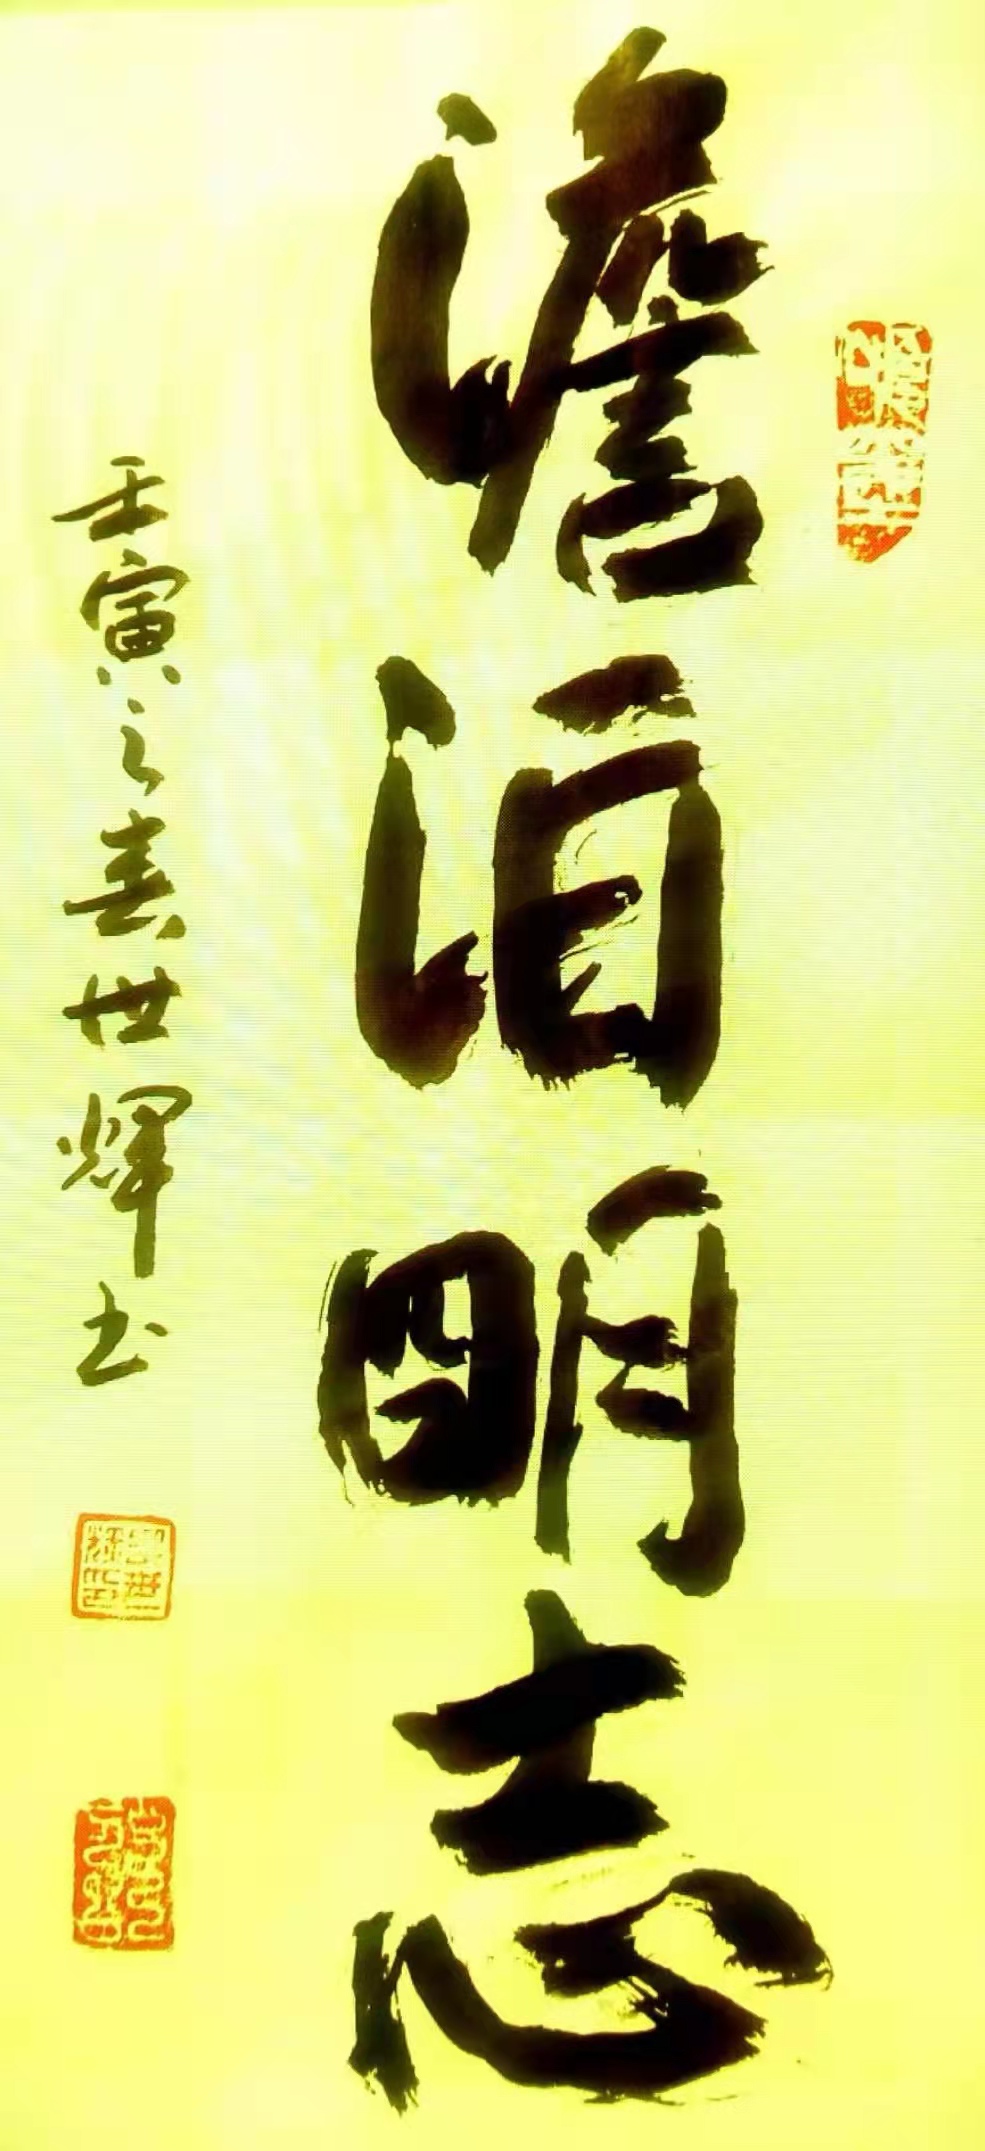 澹泊明志
壬寅之春世輝书